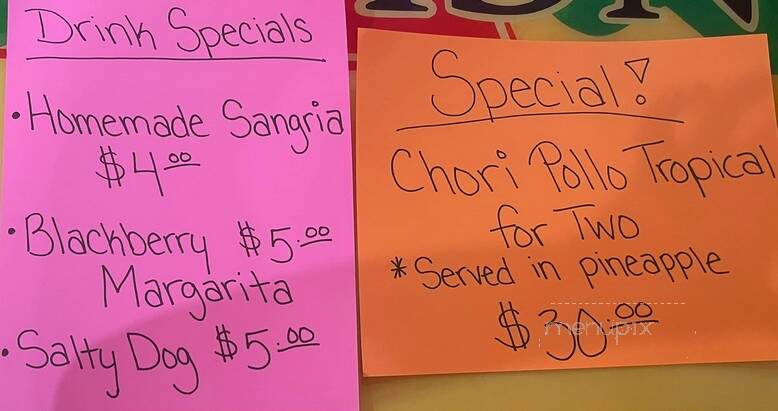 Drink Specials
• Homemade Sangria
$4.00
• Blackberry $5.00
Margarita
• Salty Dog $5.00
Special!
Chori Pollo Tropical
for Two
* Served in pineapple
$30.00
menupix